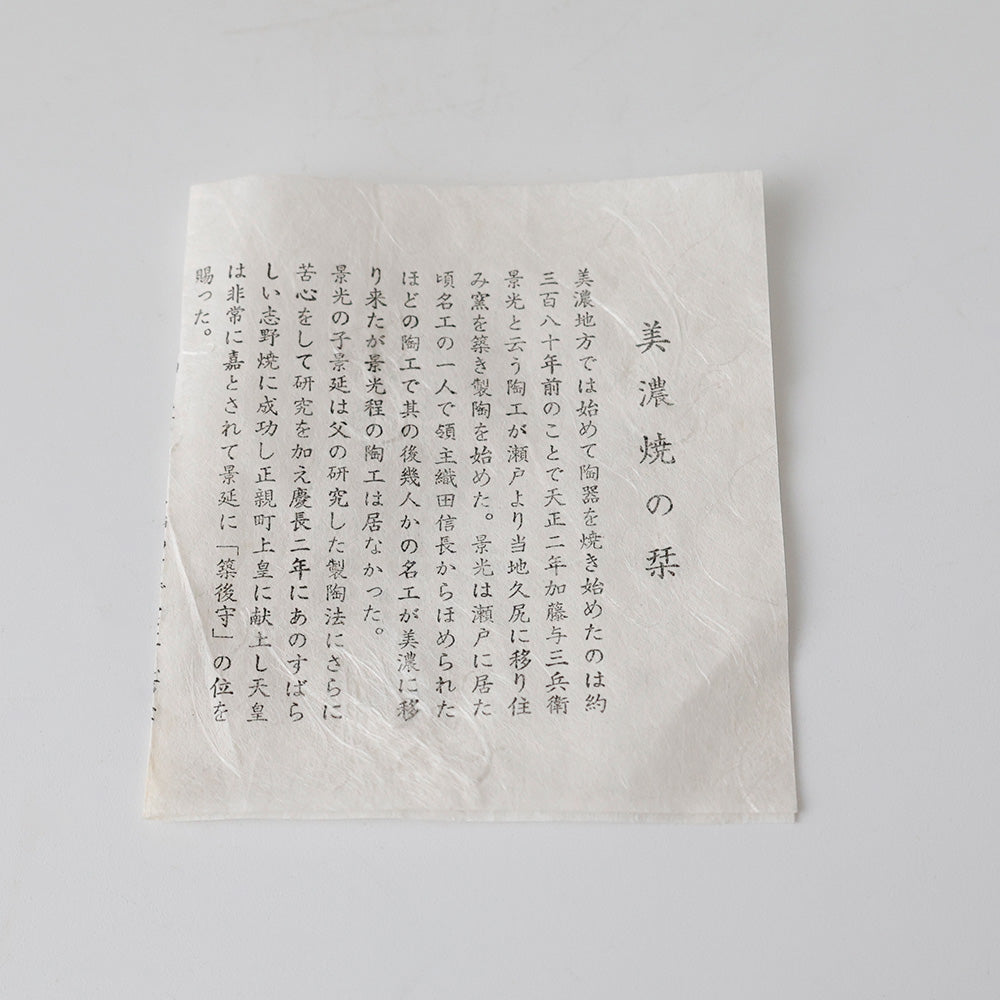 美濃焼の栞
美濃地方では始めて陶器を焼き始めたのは約
三百八十年前のことで天正二年加藤与三兵衛
景光と云う陶工が瀬戸より当地久尻に移り住
み窯を築き製陶を始めた。景光は瀬戸に居た
頃名工の一人で領主織田信長からほめられた
ほどの陶工で其の後幾人かの名工が美濃に移
り来たが景光程の陶工は居なかった。
景光の子景延は父の研究した製陶法にさらに
苦心をして研究を加え慶長二年にあのすばら
しい志野焼に成功し正親町上皇に献上し天皇
は非常に嘉とされて景延に「築後守」の位を
賜った。